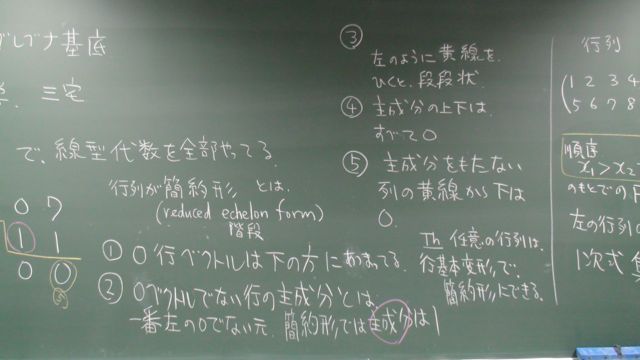 グレブナ基底
三宅
で、線型代数を全部やってる
行列が簡約形 とは、
(reduced echelon form)
階段
0 7
1 1
0 0
⑤
① 0行ベクトルは下の方にあつまってる.
② 0ベクトルでない行の主成分とは、
一番左の0でない元. 簡約形では主成分は1
③
左のように黄線を.
ひくと、段段状.
④ 主成分の上下は.
すべて0
⑤ 主成分をもたない
列の黄線から下は
0.
Th 任意の行列は、
行基本変形で、
簡約形にできる.
行列
1 2 3 4
5 6 7 8
順序
x₁>x₂
のもとでの下
左の行列の
1次式